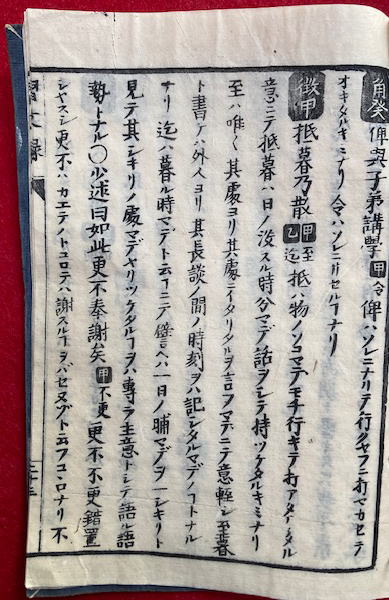 角癸 俾與子弟講學 甲令 俾ハソレニナリテ行クヤフニ打マカセテ
オキタルキミナリ 令ハソレニ セルヿナリ
徴甲 抵暮乃散 甲至 乙迄 抵ハ物ノソコマデモチ行キテ打アタタル
意ニテ抵暮ハ日ノ没スル時分マデ話ヲシテ持ツケタルキミナリ
至ハ唯〱其處ヨリ其處ニイタリタルヲ言フマデニテ意輕シ至暮
ト書ケハ外人ヨリ其長談ノ間ノ時刻ヲハ記シタルマデノコトナル
ナリ 迄ハ暮ル時マデト云フニテ譬ヘハ一日ノ晡マデヲ一シキリト
見テ其シキリノ處マデヤリツケタルヿヲハ專ラ主意トシテ語ル語
勢トナル〇少述曰如此更不奉謝矣 甲不更 更不不更錯置
シヤスシ更不ハカエテノトコロテハ謝スルヿヲバセヌゾト云フコヽロナリ 不
習文録
二十三